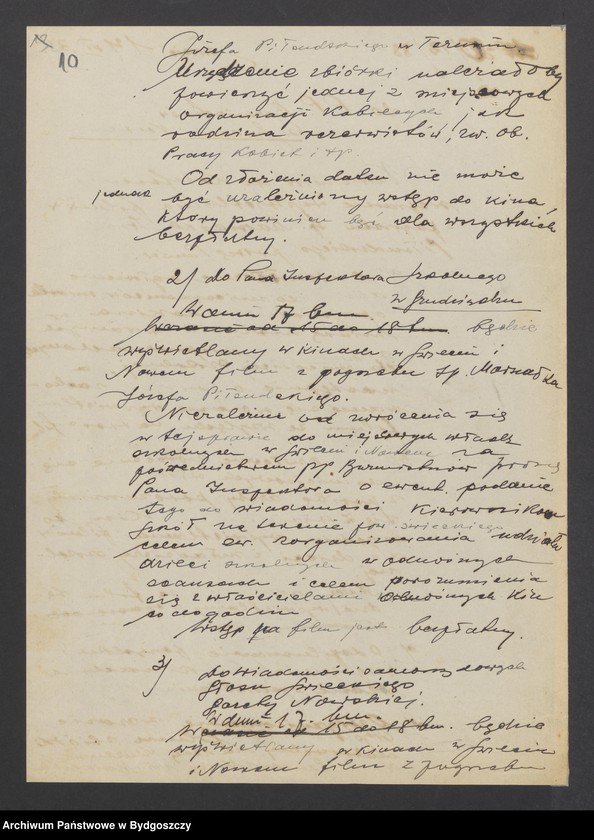 10
Józefa Piłsudskiego w Toruniu.
Urządzenie zbiórki należałoby
powierzyć jednej z miejscowych
organizacji kobiecych, jak
rodzina rezerwistów, zw. ob.
Pracy Kobiet i tp.
Od złożenia datku nie może
jednak
być uzależniony wstęp do kina,
który powinien być dla wszystkich
bezpłatny.
2/ do Pana Inspektora Szkolnego
w Grudziądzu
W dniu 17 bm.
w czasie od 15 do 18 bm. będzie
wyświetlany w kinach w Świeciu i
Nowem film z pogrzebu śp. Marszałka
Józefa Piłsudskiego.
Niezależnie od zwrócenia się
w tej sprawie do miejscowych władz
szkolnych w Świeciu i Nowem za
pośrednictwem pp. Burmistrzów proszę
Pana Inspektora o ewent. podanie
tego do wiadomości Kierowników
szkół na terenie pow. świeckiego
celem ew. zorganizowania udziału
dzieci szkolnych w odnośnych
seansach i celem porozumienia
się z właścicielami odnośnych kin
co do godzin
Wstęp na film jest bezpłatny.
3/ do wiadomości
Głosu Świeckiego
Gazety Nowskiej.
W dniu 17. bm.
W czasie 15 do 18 bm. będzie
wyświetlany w kinach w Świeciu
i Nowem film z pogrzebu
Archiwum Państwowe w Bydgoszczy